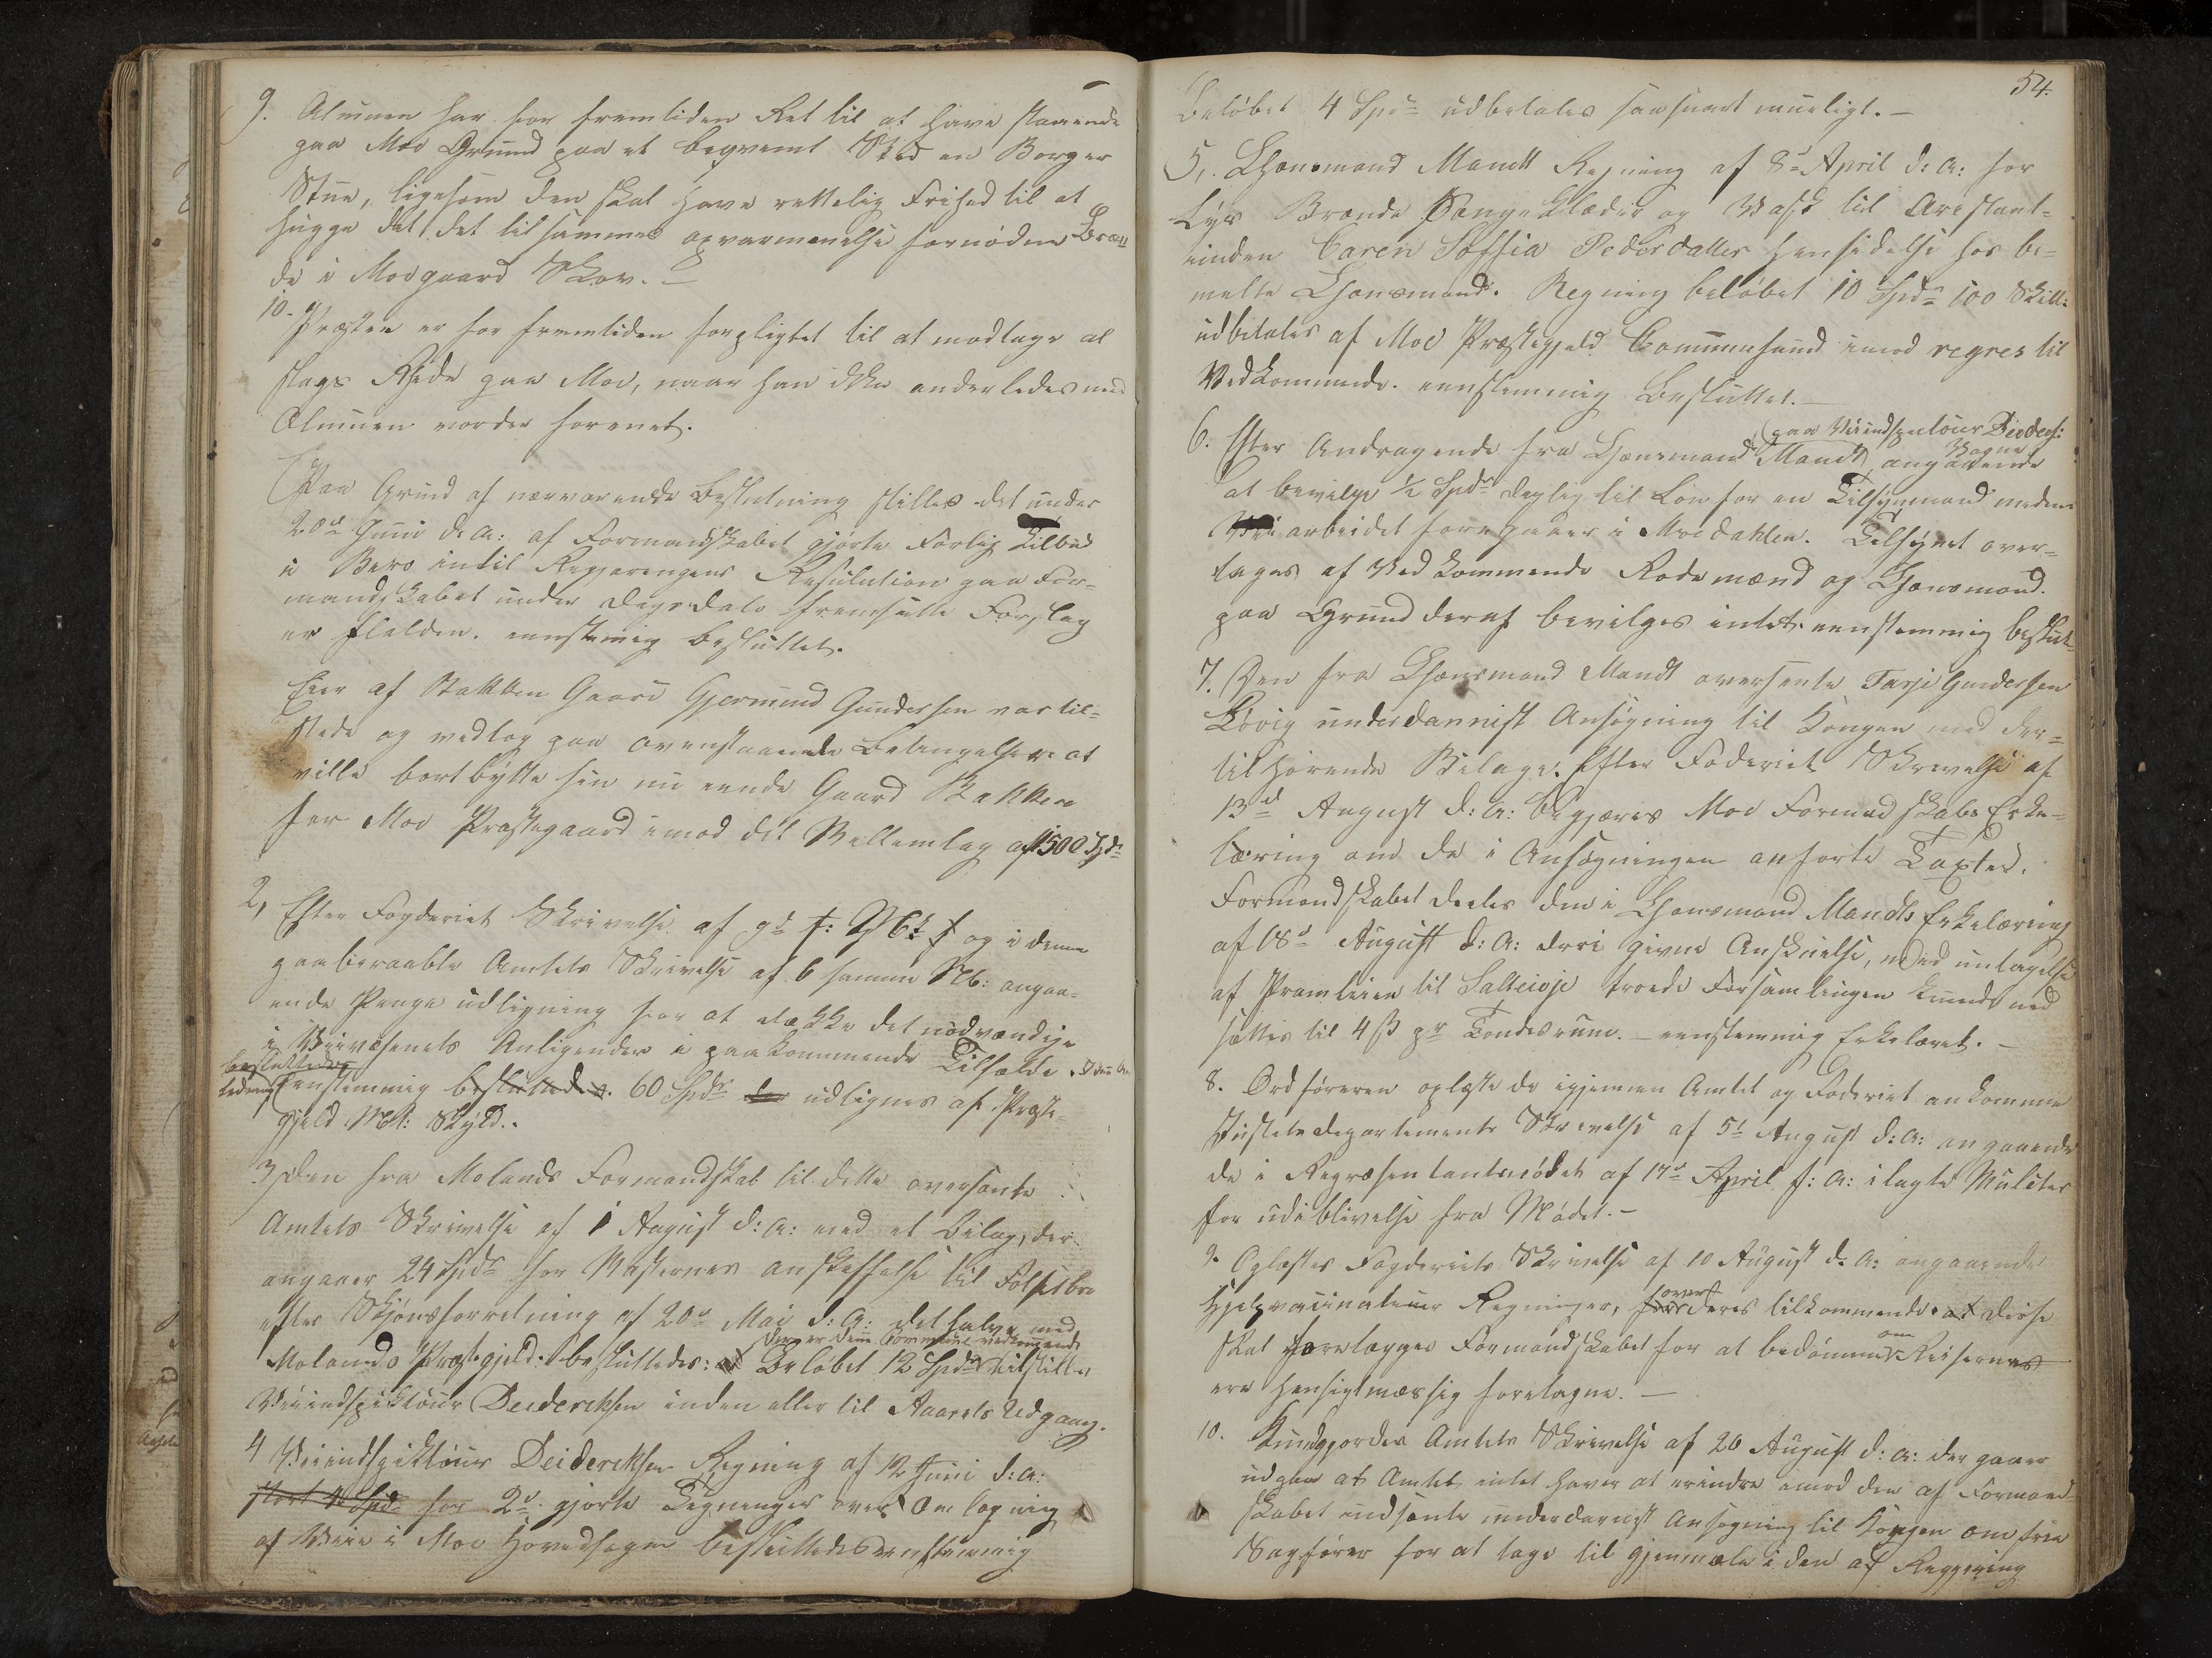 9. Almuen har for fremtiden Ret til at have staaende
paa Moe Grund paa et beqvemt Sted en Borger
Stue, ligesom den skal have rettelig Frihed til at
hugge det, det til sammes opvarmenelse fornødne Bræn
de i Moegaard Skov. –
10. Præsten er for fremtiden forpligtet til at modtage al
slags Rede paa Moe, naar han ikke anderledes med
Almuen vorder forenet.
Paa Grund af nærværende Beslutning stilles det under
20de Juni d: A: af Formandskabet gjorte Forlig Tilbud
i Bero indtil Regjeringens Resulution paa For-
mandskabet under Dags Dato fremsatte Forslag
er falden. eenstemig besluttet.
Eier af Bakken Gaard Gjermund Gundersen var til-
stede og vedtog paa ovenstaaende Betingelser at
ville bortbytte sin nu eiende Gaard Bakken
for Moe Præstegaard imod dit Mellemlag af 1500 Spd
2, Efter Fogderiet Skrivelse af 9d f: M og i denne
paaberaabte Amtets Skrivelse af 6 samme M: angaa-
ende Penge udligning for at dække det nødvændige
i Veivæsenets Anligender i paakommende Tilfælde
besluttedes
Eenstemmig besluttedes. 60 Spd udlignes af Præste-
gjeld Mt: Skyld.
3, Den fra Molands Formandskab til dette oversante
Amtets Skrivelse af 1 August d: A: med et Bilag, der
angaaer 24 Spd for Masternes anskaffelse til
efter Skjønsforretning af 20de Mai d: A: det halve med
der er denne Commune vedkommende
Molands Præstegjeld. besluttedes: at Beløbet 12 Spd tilstilles
Veiindspektøur Deiderichsen inden eller til Aarets Udgang.
4 Veiindspiktøur Deiderichsen Regning af 12 Juni d: A:
stort 4 Spd for 2de gjorte Tegninger over Omlægning
af Veie i Moe Hovedsogn besluttedes eenstemmig
54.
Beløbet 4 Spd udbetales saasnart mueligt. –
5, Lhensmand Mandt Regning af 8d April d: A: for
Lys Brænde Senge Klæder og Vask til Arestant-
inden Caren Soffia Pedersdatter hensidelse hos be-
melte Lhensmand. Regning beløbet 10 Spd 100 Skill:
udbetales af Moe Præstegjeld Communesund imod regres til
Vedkommende. eenstemmig Besluttet.
6. Efter Andragende fra Lhensmand Mandt, angaaende
paa Veiindspectour Diedech:
Vegne
at bevilge 1/2 Spd daglig til Løn for en Tilsynmand medens
Vei arbeidet foregaaer i Moedahlen. Tilsynet over-
tages af Vedkommende Rodemænd og Lhensmand.
paa Grund deraf bevilges intet. eenstemmig beslut-
7. Den fra Lhensmand Mandt oversente Tarje Gundersen
Løvig underdannist Ansøgning til Kongen med der-
til hørende Bilage. Efter Foderiet Skrivelse af
13d August d: A: begjæres Moe Formandskabs Erke-
læring om de i Ansøgningen anførte Taxter.
Formandskabet deeler den i Lhensmand Mandts Erkelæring
af 18d August d: A: deri givne Anskuelse, med untagelse
af Pramleien til Salteiøje troede Forsamlingen kunde ned
sættes til 4 ß pr Tønderum. – eenstemmig Erkelæret. –
8. Ordføreren oplæste de igjennem Amtet og Foderiet ankomne
Justetsdepartements Skrivelse af 5t August d: A: angaaende
de i Repræsentantmødet af 17d April f: A: ilagte Mulcter
for udiblivelse fra Mødet. –
9. Oplæstes Fogderiets Skrivelse af 10 August d: A: angaaende
Hjelpvaccinateur Regninger, for over deres tilkommende at disse
skal forelægges Formandskabet for at bedømmes om Reiserne
ere hensigtmæssig foretagne. –
10. Kundgjordes Amtets Skrivelse af 20 August d: A: der gaaer
ud paa at Amtet intet haver at erindre imod den af Formand
skabet indsente underdanigst Ansøgning til Kongen om frie
Sagfører for at tage til gjenmæle i den af Regjering